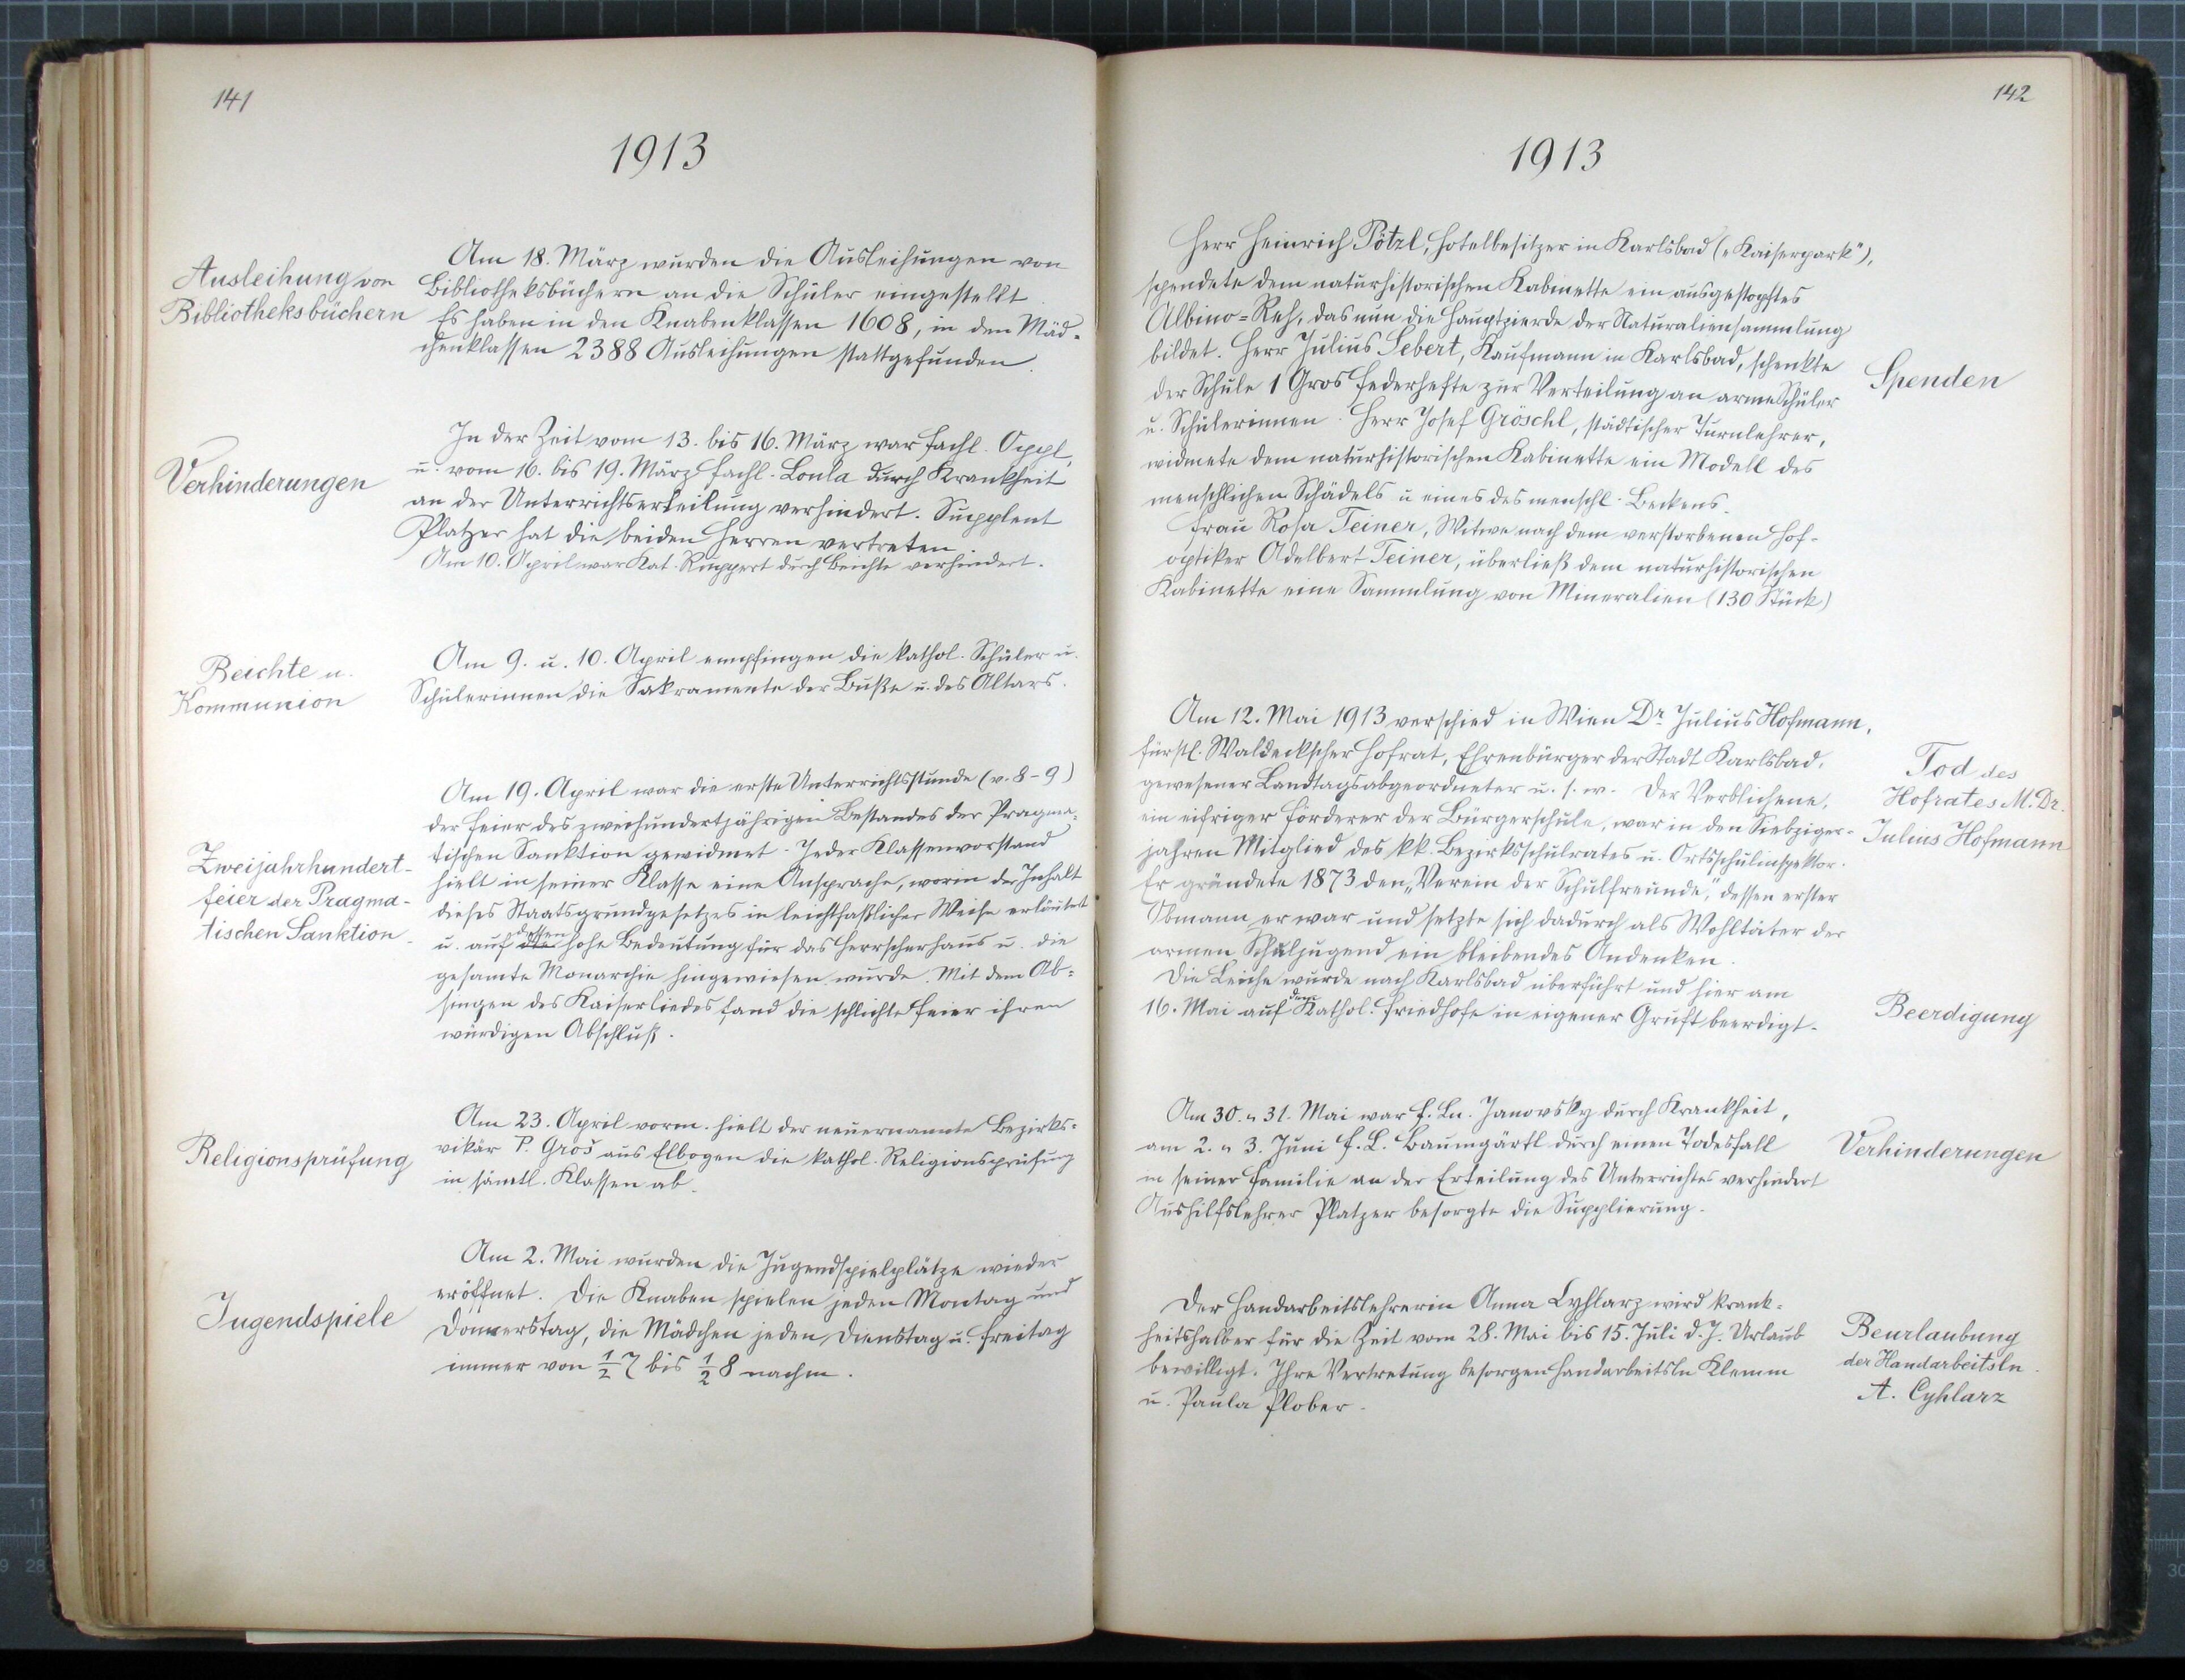 141
1913
Ausleihung von
Bibliotheksbüchern
Am 18. März wurden die Ausleihungen von
Bibliotheksbüchern an die Schüler eingestellt.
Es haben in den Knabenklassen 1608, in den Mäd-
chenklassen 2388 Ausleihungen stattgefunden.
Verhinderungen
In der Zeit vom 13. bis 16. März war Fachl. Oppl,
u. vom 16. bis 19. März Fachl. Loula durch Krankheit
an der Unterrichtserteilung verhindert. Supplent
Platzer hat die beiden Herren vertreten.
Am 10. April war Kat. Ruppert durch Beichte verhindert.
Beichte u.
Kommunion
Am 9. u. 10. April empfingen die kathol. Schüler u.
Schülerinnen die Sakramente der Buße u. des Altars.
Zweijahrhundert-
feier der Pragma-
tischen Sanktion.
Am 19. April war die erste Unterrichtsstunde (v. 8-9)
der Feier des zweihundertjährigen Bestandes der Pragma-
tischen Sanktion gewidmet. Jeder Klassenvorstand
hielt in seiner Klasse eine Ansprache, worin der Inhalt
dieses Staatsgrundgesetzes in leichtfaßlicher Weise erläutert
u. auf dessen hohe Bedeutung für das Herrscherhaus u. die
gesamte Monarchie hingewiesen wurde. Mit dem Ab-
singen des Kaiserliedes fand die schlichte Feier ihren
würdigen Abschluß.
Religionsprüfung
Am 23. April vorm. hielt der neuernannte Bezirks-
vikär P. Groš aus Elbogen die kathol. Religionsprüfung
in sämtl. Klassen ab.
Jugendspiele
Am 2. Mai wurden die Jugendspielplätze wieder
eröffnet. Die Knaben spielen jeden Montag und
Donnerstag, die Mädchen jeden Dienstag u. Freitag
immer von ½7 bis ½8 nachm.
142
1913
Herr Heinrich Pötzl, Hotelbesitzer in Karlsbad („Kaiserpark"),
spendete dem naturhistorischen Kabinette ein ausgestopftes
Albino-Reh, das nun die Hauptzierde der Naturaliensammlung
bildet. Herr Julius Sebert, Kaufmann in Karlsbad, schenkte
der Schule 1 Gros Federhefte zur Verteilung an arme Schüler
u. Schülerinnen. Herr Josef Gröschl, städtischer Turnlehrer,
widmete dem naturhistorischen Kabinette ein Modell des
menschlichen Schädels u eines des menschl. Beckens.
Frau Rosa Teiner, Witwe nach dem verstorbenen Hof-
optiker Adelbert Teiner, überließ dem naturhistorischen
Kabinette eine Sammlung von Mineralien (130 Stück)
Spenden
Am 12. Mai 1913 verschied in Wien Dr. Julius Hofmann,
fürstl. Waldeckscher Hofrat, Ehrenbürger der Stadt Karlsbad,
gewesener Landtagsabgeordneter u. s. w. Der Verblichene,
ein eifriger Förderer der Bürgerschule, war in den Siebziger-
jahren Mitglied des kk. Bezirksschulrates u. Ortsschulinspektor.
Er gründete 1873 den „Verein der Schulfreunde," dessen erster
Obmann er war und setzte sich dadurch als Wohltäter der
armen Schuljugend ein bleibendes Andenken.
Die Leiche wurde nach Karlsbad überführt und hier am
16. Mai auf dem Kathol. Friedhofe in eigener Gruft beerdigt.
Tod des
Hofrates M. Dr.
Julius Hofmann
Beerdigung
Am 30. u 31. Mai war F. Ln. Janovsky durch Krankheit,
am 2. u 3. Juni F. L. Baumgärtl durch einen Todesfall
in seiner Familie an der Erteilung des Unterrichtes verhindert
Aushilfslehrer Platzer besorgte die Supplierung.
Verhinderungen
Der Handarbeitslehrerin Anna Cyhlarz wird krank-
heitshalber für die Zeit vom 28. Mai bis 15. Juli d. J. Urlaub
bewilligt. Ihre Vertretung besorgen Handarbeitsln Klemm
u. Paula Plober.
Beurlaubung
der Handarbeitsln.
A. Cyhlarz